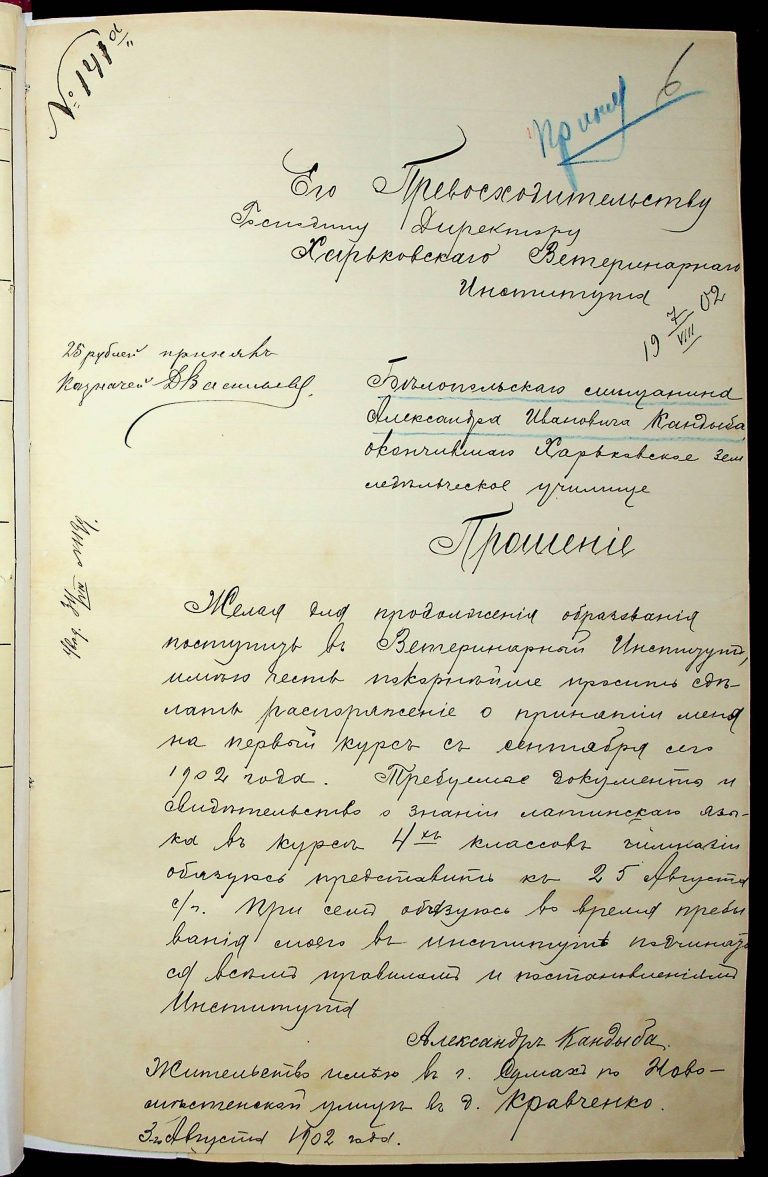 № 141а
6
Принят
Его Превосходительству
Господину Директору
Харьковскаго Ветеринарнаго
Института
19 7/VIII 02
25 рублей принялъ
Казначей ДВасильевъ
Бѣлопольскаго мѣщанина
Александра Ивановича Кандыба,
окончившаго Харьковское Зем
ледѣльческое училище
Прошеніе
Желая для продолженія образованія
поступить въ Ветеринарный Институтъ,
имѣю честь покорнѣйше просить сдѣ-
лать распоряженіе о принятіи меня
на первый курсъ съ сентября сего
1902 года. Требуемые документы и
свидѣтельство о знаніи латинскаго язы-
ка въ курсѣ 4хъ классовъ гимназіи
обязуюсь представить къ 25 Августа
с/г. При семъ обязуюсь во время пребы
ванія моего въ институтѣ подчинять
ся всѣмъ правиламъ и постановленіямъ
Института
Александръ Кандыба.
Жительство имѣю въ г. Сумахъ по Ново-
мѣстенской улицѣ въ д. Кравченко.
3го Августа 1902 года.